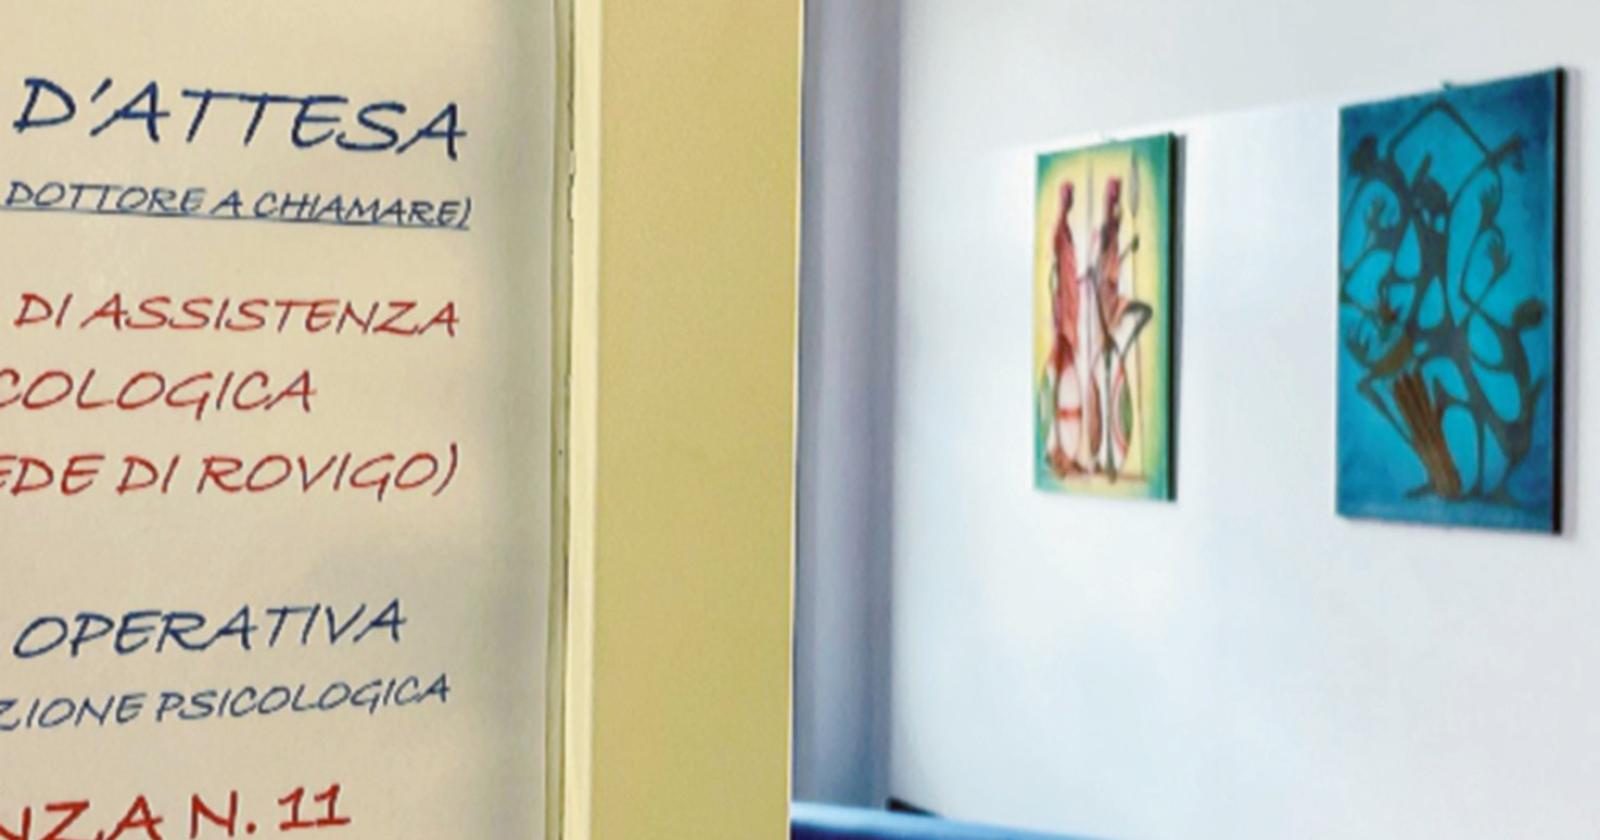 D'ATTESA
DOTTORE A CHIAMARE)
DI ASSISTENZA
COLOGICA
EDE DI ROVIGO)
OPERATIVA
ZIONE PSICOLOGICA
NZA N. 11